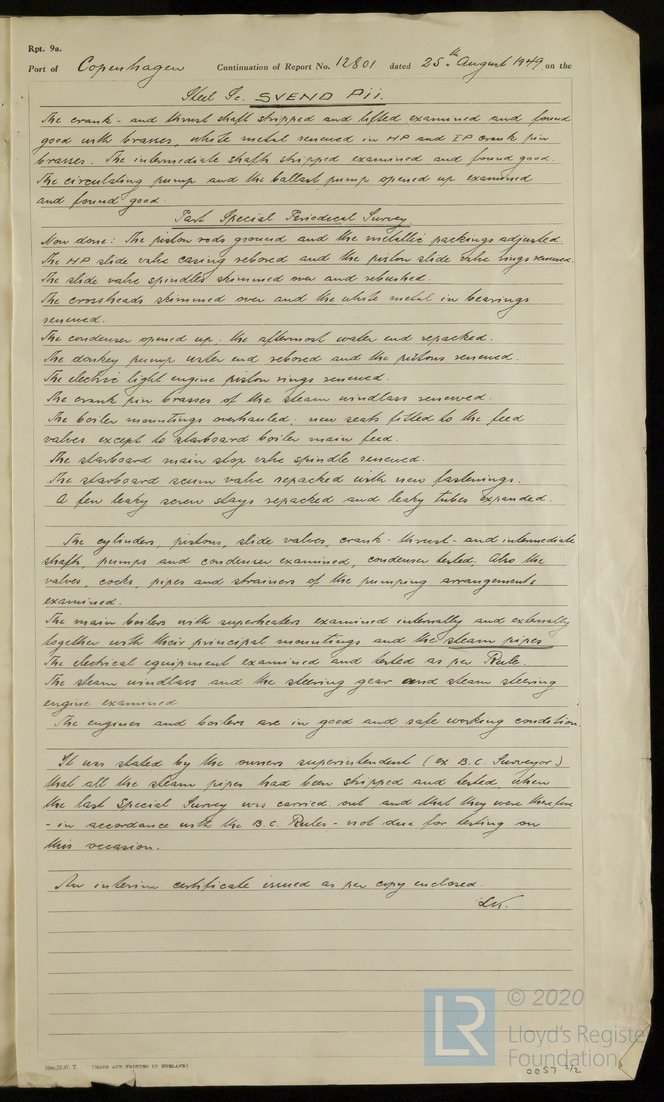 Rpt. 9a.
Port of Copenhagen Continuation of Report No. 12801 dated 25th August 1949 on the
Steel Sc. SVEND Pii.
The crank- and thrust shaft stripped and lifted examined and found
good with brasses, white metal renewed in HP and IP crank pin
brasses. The intermediate shafts stripped examined and found good.
The circulating pump and the ballast pump opened up examined
and found good.
Part Special Periodecal Survey
Now done: The piston rods ground and the metallic packings adjusted.
The HP slide valve casing rebored and the piston slide valve rings renewed.
The slide valve spindles skimmed over and rebushed.
The crossheads skimmed over and the white metal in bearings
renewed.
The condenser opened up. the aftermost water end repacked.
The donkey pump water end rebored and the pistons renewed.
The electric light engine piston rings renewed.
The crank pin brasses of the steam windlass renewed.
The boiler mountings overhauled; new seats fitted to the feed
valves except to starboard boiler main feed.
The starboard main stop valve spindle renewed.
The starboard scum valve repacked with new fastenings.
A few leaky screw stays repacked and leaky tubes expanded.
The cylinders, pistons, slide valves, crank- thrust- and intermediate
shafts, pumps and condenser examined, condenser tested, Also the
valves, cocks, pipes and strainers of the pumping arrangements
examined.
The main boilers with superheaters examined internally and externally
together with their principal mountings and the steam pipes
The electrical equipment examined and tested as per Rule.
The steam windlass and the steering gear and steam steering
engine examined
The engines and boilers are in good and safe working condition.
It was stated by the owners superintendent (ex B.C. Surveyor)
that all the steam pipes had been stripped and tested, when
the last Special Survey was carried out and that they were therefore
- in accordance with the B.C. Rules - not due for testing on
this occasion.
An interim certificate issued as per copy enclosed.
LK.
© 2020
LR
Lloyd's Register
Foundation
0057 2/2
(MADE AND PRINTED IN ENGLAND)